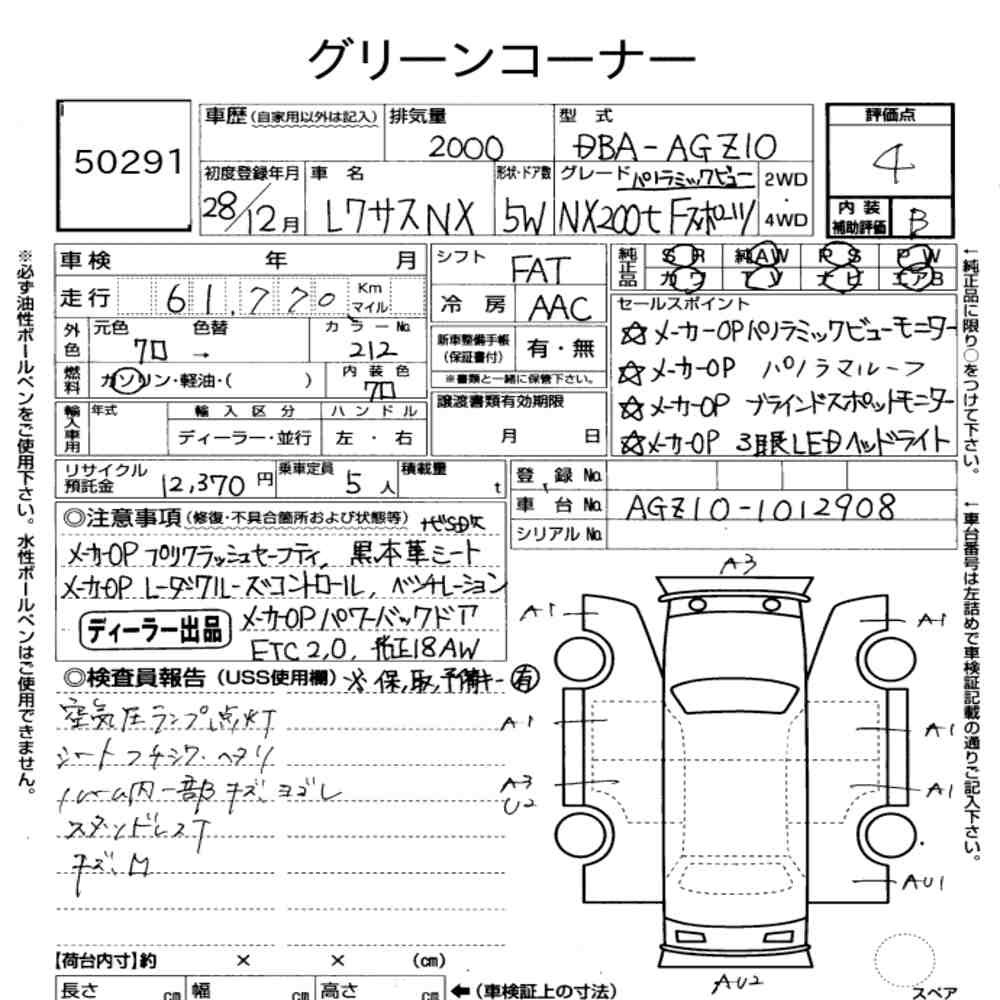 グリーンコーナー
50291
車歴(自家用以外は記入) 排気量 2000 型式 DBA-AGZ10
評価点 4
初度登録年月 28/12月 車名 レクサスNX 形状・ドア数 5W グレード パノラミックビュー NX200t Fスポーツ 2WD ・ 4WD
内装補助評価 B
車検 年 月
走行 61,770 Km マイル
外色 元色 クロ → 色替 カラーNo. 212
燃料 ガソリン・軽油・( ) 内装色 クロ
輸入車用 年式 輸入区分 ディーラー・並行 ハンドル 左・右
シフト FAT
冷房 AAC
新車整備手帳(保証書付) 有・無
※書類と一緒に保管下さい。
譲渡書類有効期限 月 日
純正品 SR 純AW PS PW
カワ TV ナビ エアB
セールスポイント
☆メーカーOPパノラミックビューモニター
☆メーカーOP パノラマルーフ
☆メーカーOP ブラインドスポットモニター
☆メーカーOP 3眼LEDヘッドライト
リサイクル預託金 12,370円 乗車定員 5人 積載量 t
登録No.
車台No. AGZ10-1012908
シリアルNo.
◎注意事項(修復・不具合箇所および状態等) ナビSD欠
メーカーOP プリクラッシュセーフティ, 黒本革シート
メーカーOP レーダクルーズコントロール, ベンチレーション
ディーラー出品 メーカーOPパワーバックドア
ETC2.0, 純正18AW
◎検査員報告(USS使用欄) ※保,取,予備キー有
空気圧ランプ点灯
シートフチシワ・ヘタリ
ルーム内一部キズ、ヨゴレ
スタンドレスT
キズ、M
A3
A1
A1
A1
A1
A3
U2
A1
AU1
AU2
スペア
【荷台内寸】約 × × (cm)
長さ cm 幅 cm 高さ cm ←(車検証上の寸法)
※必ず油性ボールペンをご使用下さい。水性ボールペンはご使用できません。
←純正品に限り○をつけて下さい。
←車台番号は左詰めで車検証記載の通りご記入下さい。